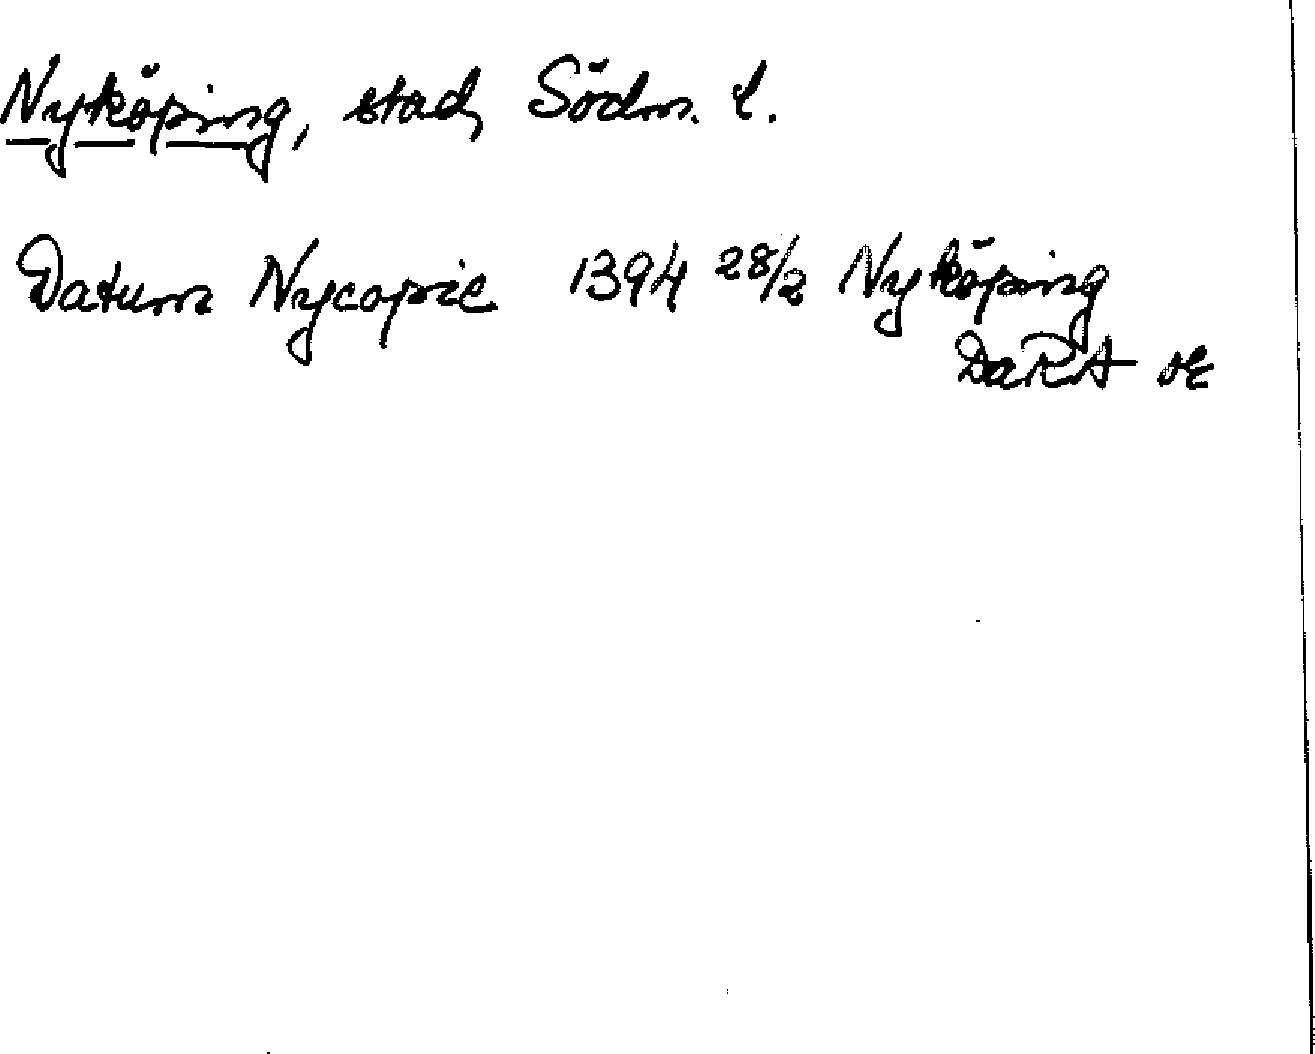 Nyköping, stad, Södm. l.
Datum Nycopie 1394 28/2 Nyköping
DaRA